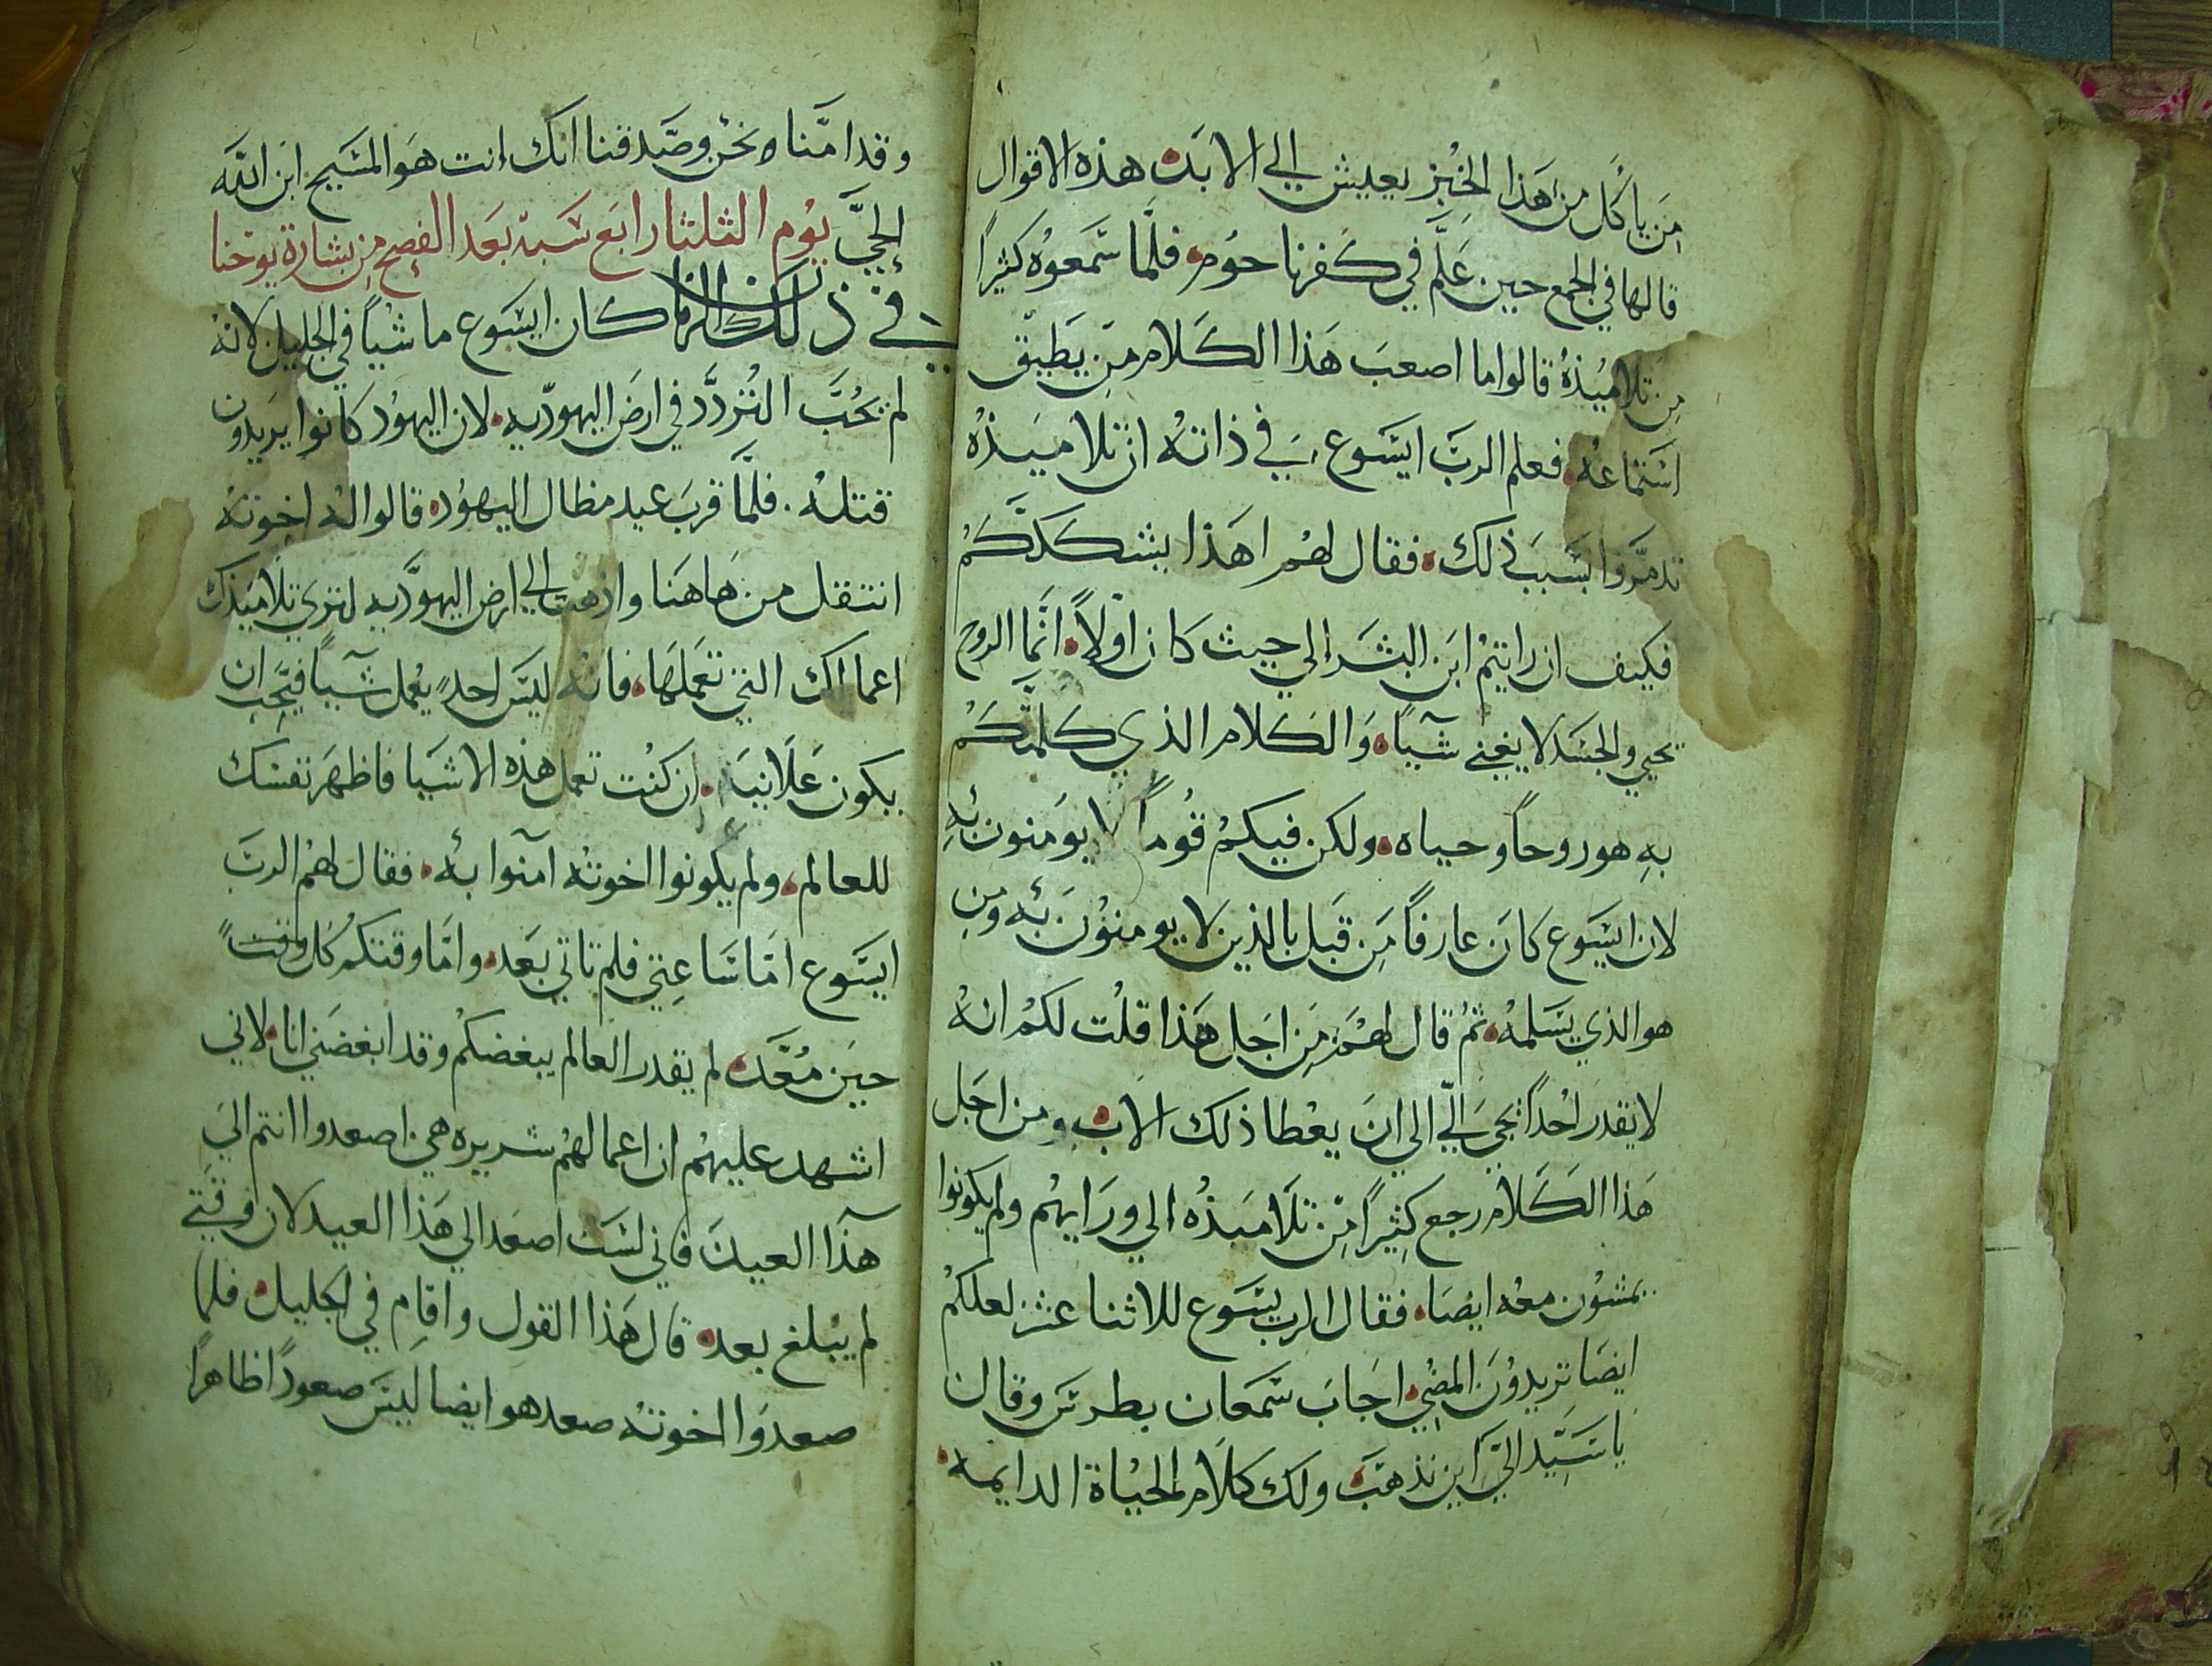 من ياكل من هذا الخبز يعيش الي الابد هذه الاقوال
قالها في المجمع حين علم في كفرناحوم فلما سمعوه كثيرا
من تلاميذه قالوا ما اصعب هذا الكلام من يطيق
استماعه فعلم الرب ايسوع في ذاته ان تلاميذه
تدمروا بسبب ذلك فقال لهم اهذا يشككم
فكيف ان رايتم ابن البشر الي حيث كان اولا انما الروح
تحيي والجسد لا يغني شيا والكلام الذي كلمتكم
به هو روحا وحياه ولكن فيكم قوما لا يومنون به
لان ايسوع كان عارفا من قبل بالذين لا يومنون به ومن
هو الذي يسلمه ثم قال لهم من اجل هذا قلت لكم انه
لا يقدر احدا يجي الي الي ان يعطا ذلك الاب ومن اجل
هذا الكلام رجع كثيرا من تلاميذه الي ورايهم ولم يكونوا
يمشون معه ايضا فقال الرب يسوع للاثنا عشر لعلكم
ايضا تريدون المضي اجاب سمعان بطرس وقال
يا سيد الي اين نذهب ولك كلام الحياة الدايمه
وقد امنا نحن وصدقنا انك انت هو المسيح ابن الله
الحي يوم الثلثا رابع سبة بعد الفصح من بشارة يوحنا
في ذلك الزمان كان ايسوع ماشيا في الجليل لانه
لم يحب التردد في ارض اليهوديه لان اليهود كانوا يريدون
قتله فلما قرب عيد مظال اليهود قالوا له اخوته
انتقل من هاهنا واذهب الي ارض اليهوديه لتري تلاميذك
اعمالك التي تعملها فانه ليس احد يعمل شيا فيحب ان
يكون علانية ان كنت تعمل هذه الاشيا فاظهر نفسك
للعالم ولم يكونوا اخوته آمنوا به فقال لهم الرب
ايسوع اما ساعتي فلم تاتي بعد واما وقتكم كل وقت
حين معد لم يقدر العالم يبغضكم وقد ابغضني انا لاني
اشهد عليهم ان اعمالهم شريره هي اصعدوا انتم الي
هذا العيد فاني لست اصعد الي هذا العيد لان وقتي
لم يبلغ بعد قال هذا القول واقام في الجليل فلما
صعدوا اخوته صعد هو ايضا ليس صعودا ظاهرا